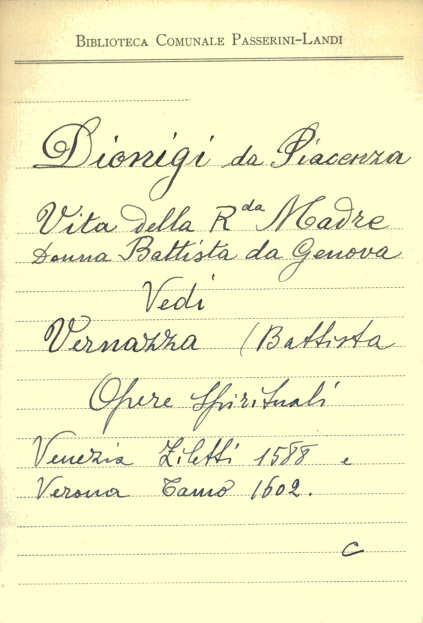 BIBLIOTECA COMUNALE PASSERINI-LANDI
Dionigi da Piacenza
Vita della Rda Madre
Donna Battista da Genova
Vedi
Vernazza (Battista
Opere spirituali
Venezia Ziletti 1588 e
Verona Tamo 1602.
C